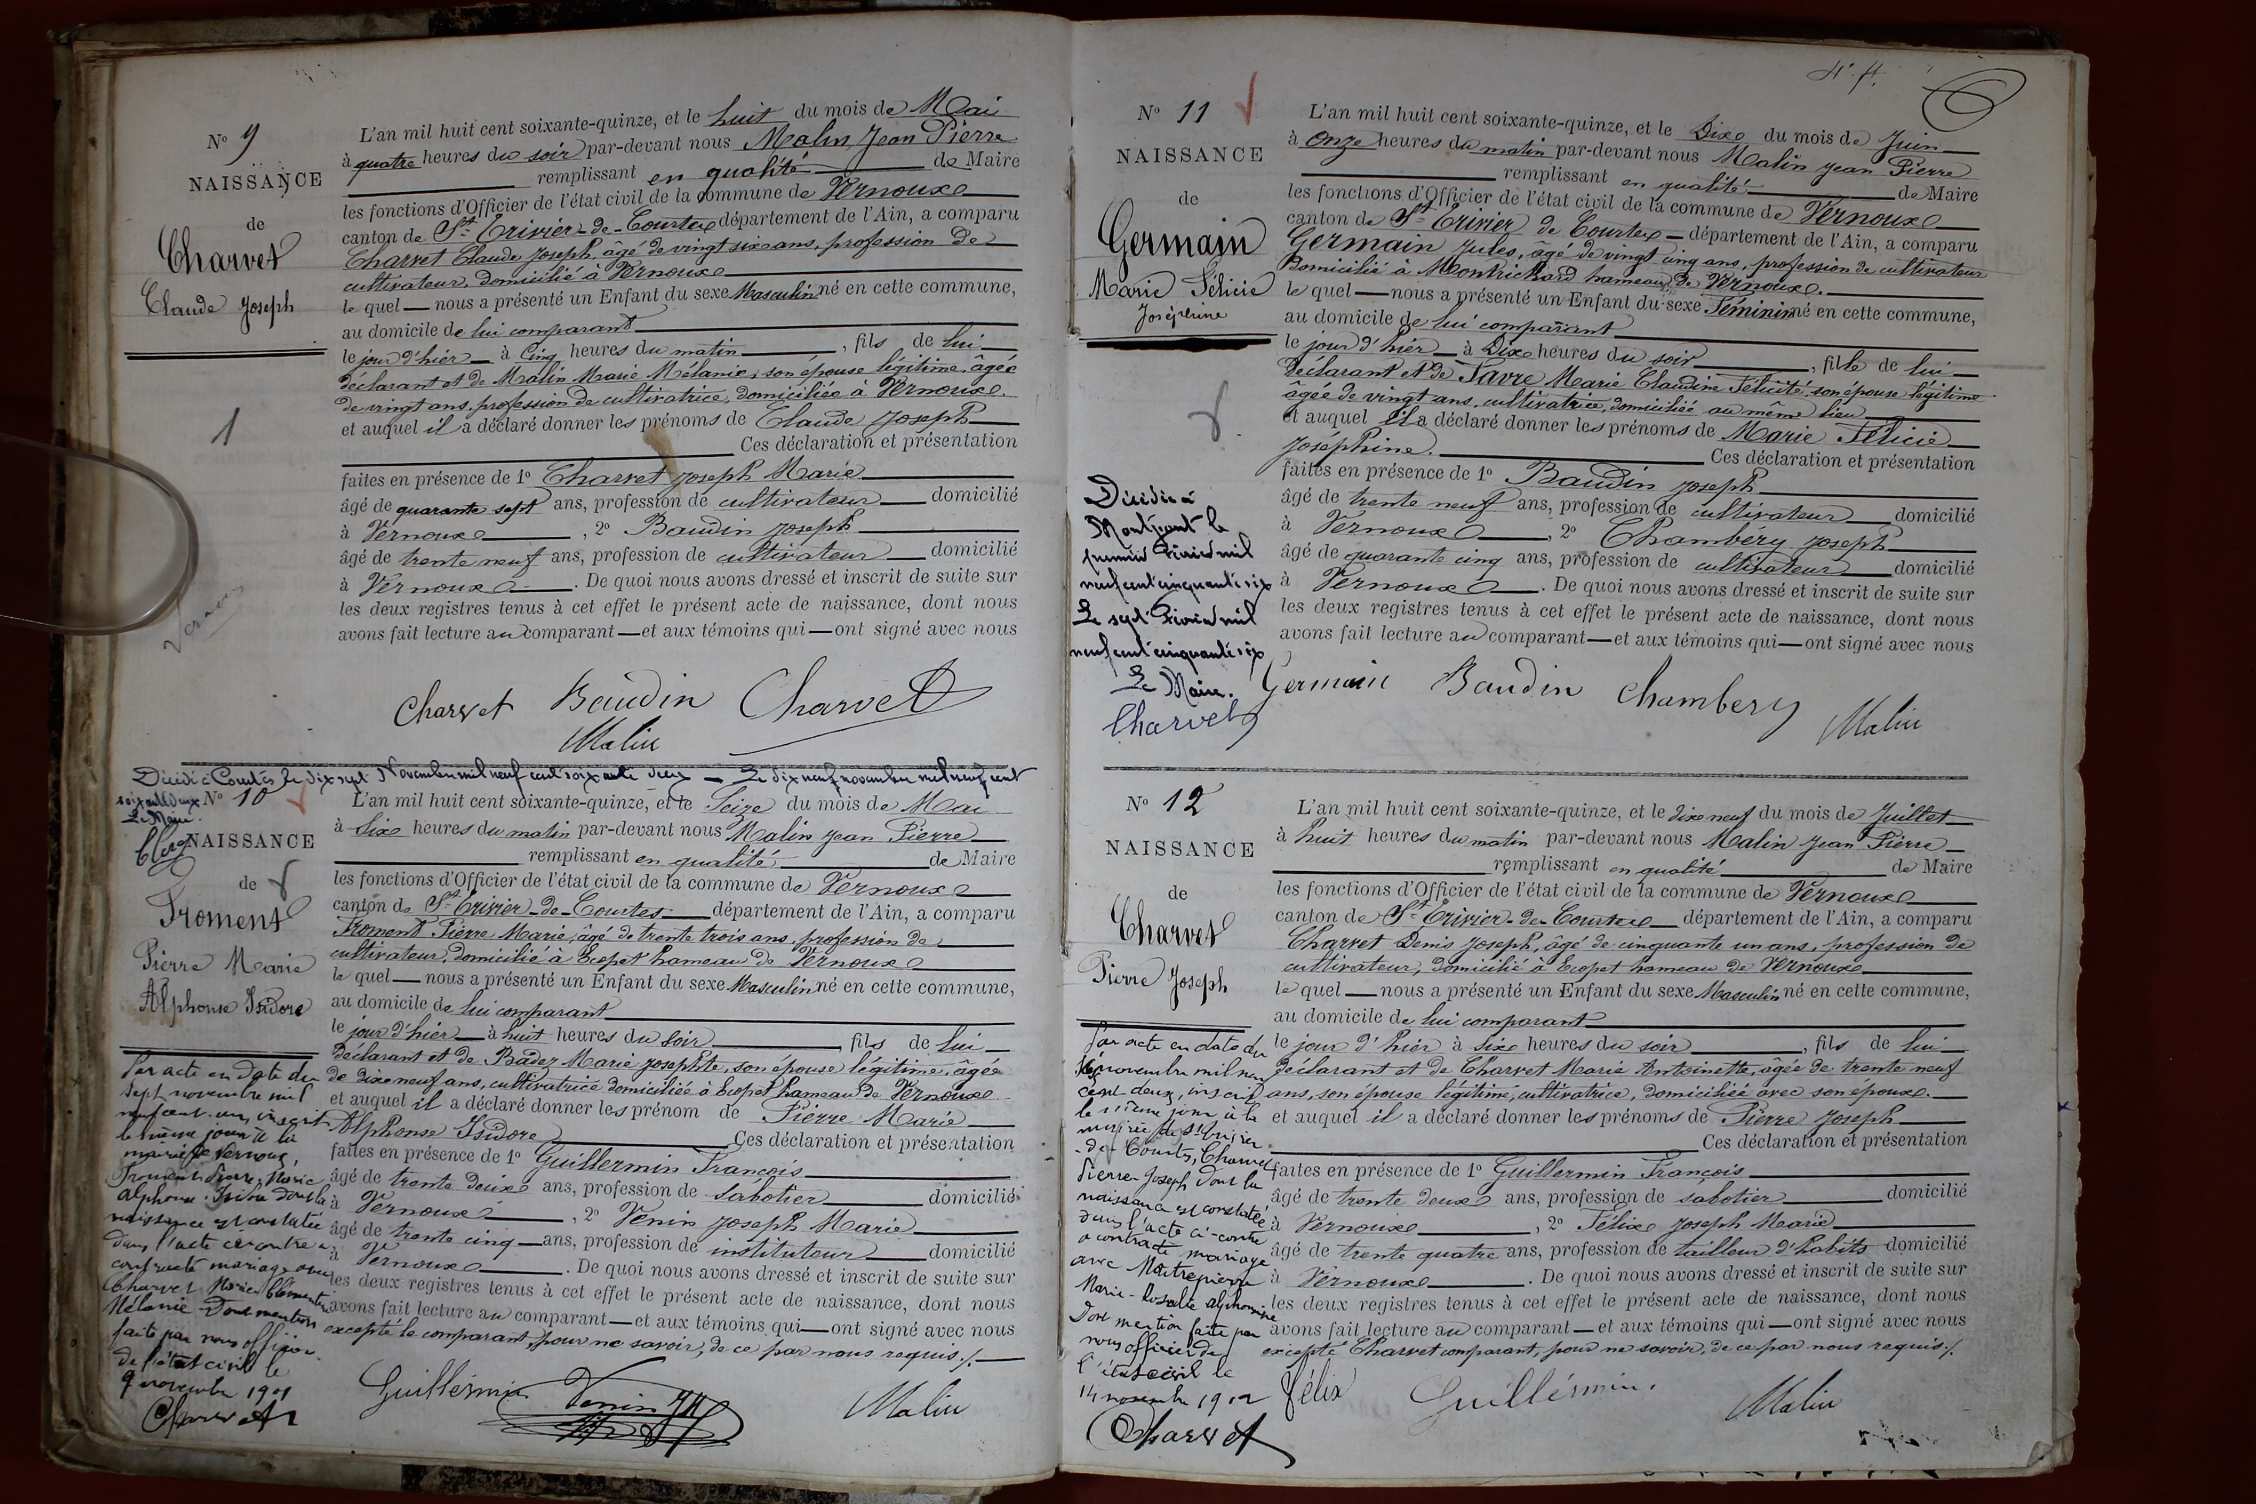 N° 9
NAISSANCE
de
Charvet
Claude Joseph
1
L'an mil huit cent soixante-quinze, et le huit du mois de Mai
à quatre heures du soir par-devant nous Malin Jean Pierre
remplissant en qualité de Maire
les fonctions d'Officier de l'état civil de la commune de Vernoux
canton de St Trivier-de-Courtes département de l'Ain, a comparu
Charvet Claude Joseph, âgé de vingt six ans, profession de
cultivateur, domicilié à Vernoux
le quel — nous a présenté un Enfant du sexe Masculin né en cette commune,
au domicile de lui comparant
le jour d'hier à cinq heures du matin, fils de lui
déclarant et de Malin Marie Mélanie, son épouse légitime, âgée
de vingt ans, profession de cultivatrice, domiciliée à Vernoux.
et auquel il a déclaré donner les prénoms de Claude Joseph
Ces déclaration et présentation
faites en présence de 1° Charvet Joseph Marie
âgé de quarante sept ans, profession de cultivateur domicilié
à Vernoux, 2° Baudin Joseph
âgé de trente neuf ans, profession de cultivateur domicilié
à Vernoux. De quoi nous avons dressé et inscrit de suite sur
les deux registres tenus à cet effet le présent acte de naissance, dont nous
avons fait lecture au comparant — et aux témoins qui — ont signé avec nous
Charvet Baudin Charvet
Malin
Décédé à Courtes le dix sept Novembre mil neuf cent soixante deux — Le dix neuf novembre mil neuf cent
soixante deux
Le Maire.
N° 10
NAISSANCE
de
Froment
Pierre Marie
Alphonse Isidore
Par acte en date du
sept novembre mil
neuf cent un, inscrit
le même jour à la
mairie de Vernoux,
Froment Pierre, Marie
Alphonse Isidore dont la
naissance est constatée
dans l'acte ci-contre a
contracté mariage avec
Charvet Marie Clémentine
Mélanie. Dont mention
faite par nous officier
de l'état civil le
9 novembre 1901
Charvet
L'an mil huit cent soixante-quinze, et le Seize du mois de Mai
à Six heures du matin par-devant nous Malin Jean Pierre
remplissant en qualité de Maire
les fonctions d'Officier de l'état civil de la commune de Vernoux
canton de St Trivier-de-Courtes département de l'Ain, a comparu
Froment Pierre Marie, âgé de trente trois ans, profession de
cultivateur, domicilié à Ecopet hameau de Vernoux
le quel — nous a présenté un Enfant du sexe Masculin né en cette commune,
au domicile de lui comparant
le jour d'hier à huit heures du soir, fils de lui
déclarant et de Badez Marie Josephte, son épouse légitime, âgée
de dix neuf ans, cultivatrice domiciliée à Ecopet hameau de Vernoux
et auquel il a déclaré donner les prénom de Pierre Marie
Alphonse Isidore Ces déclaration et présentation
faites en présence de 1° Guillermin François
âgé de trente deux ans, profession de Sabotier domicilié
à Vernoux, 2° Venin Joseph Marie
âgé de trente cinq ans, profession de instituteur domicilié
à Vernoux. De quoi nous avons dressé et inscrit de suite sur
les deux registres tenus à cet effet le présent acte de naissance, dont nous
avons fait lecture au comparant — et aux témoins qui — ont signé avec nous
excepté le comparant, pour ne savoir, de ce par nous requis./.
Guillermin Venin JM Malin
N° 11
NAISSANCE
de
Germain
Marie Félicie
Joséphine
Décédée à
Montpont le
premier Février mil
neuf cent cinquante six
Le sept Février mil
neuf cent cinquante six
Le Maire.
Charvet
L'an mil huit cent soixante-quinze, et le Dix du mois de Juin
à onze heures du matin par-devant nous Malin Jean Pierre
remplissant en qualité de Maire
les fonctions d'Officier de l'état civil de la commune de Vernoux
canton de St Trivier de Courtes département de l'Ain, a comparu
Germain Jules, âgé de vingt cinq ans, profession de cultivateur
Domicilié à Montrichard hameau de Vernoux.
le quel — nous a présenté un Enfant du sexe Féminin né en cette commune,
au domicile de lui comparant
le jour d'hier à Dix heures du soir, fille de lui
déclarant et de Favre Marie Claudine Félicité, son épouse légitime
âgée de vingt ans, cultivatrice, domiciliée au même lieu
et auquel il a déclaré donner les prénoms de Marie Félicie
Joséphine. Ces déclaration et présentation
faites en présence de 1° Baudin Joseph
âgé de trente neuf ans, profession de cultivateur domicilié
à Vernoux, 2° Chambéry Joseph
âgé de quarante cinq ans, profession de cultivateur domicilié
à Vernoux. De quoi nous avons dressé et inscrit de suite sur
les deux registres tenus à cet effet le présent acte de naissance, dont nous
avons fait lecture au comparant — et aux témoins qui — ont signé avec nous
Germain Baudin Chambery Malin
N° 12
NAISSANCE
de
Charvet
Pierre Joseph
Par acte en date du
novembre mil neuf
cent deux, inscrit
le même jour à la
mairie de St Trivier
-de Courtes, Charvet
Pierre Joseph dont la
naissance est constatée
dans l'acte ci-contre
a contracté mariage
avec Maitrepierre
Marie-Rosalie Alphonsine
Dont mention faite par
nous officier de
l'état civil le
14 novembre 1902
Charvet
L'an mil huit cent soixante-quinze, et le dix neuf du mois de Juillet
à huit heures du matin par-devant nous Malin Jean Pierre
remplissant en qualité de Maire
les fonctions d'Officier de l'état civil de la commune de Vernoux
canton de St Trivier-de-Courtes département de l'Ain, a comparu
Charvet Denis Joseph, âgé de cinquante un ans, profession de
cultivateur, domicilié à Ecopet hameau de Vernoux
le quel — nous a présenté un Enfant du sexe Masculin né en cette commune,
au domicile de lui comparant
le jour d'hier à six heures du soir, fils de lui
déclarant et de Charvet Marie Antoinette, âgée de trente neuf
ans, son épouse légitime, cultivatrice, domiciliée avec son époux.
et auquel il a déclaré donner les prénoms de Pierre Joseph
Ces déclaration et présentation
faites en présence de 1° Guillermin François
âgé de trente deux ans, profession de sabotier domicilié
à Vernoux, 2° Félix Joseph Marie
âgé de trente quatre ans, profession de tailleur d'habits domicilié
à Vernoux. De quoi nous avons dressé et inscrit de suite sur
les deux registres tenus à cet effet le présent acte de naissance, dont nous
avons fait lecture au comparant — et aux témoins qui — ont signé avec nous
excepté Charvet comparant, pour ne savoir, de ce par nous requis./.
Félix Guillermin Malin